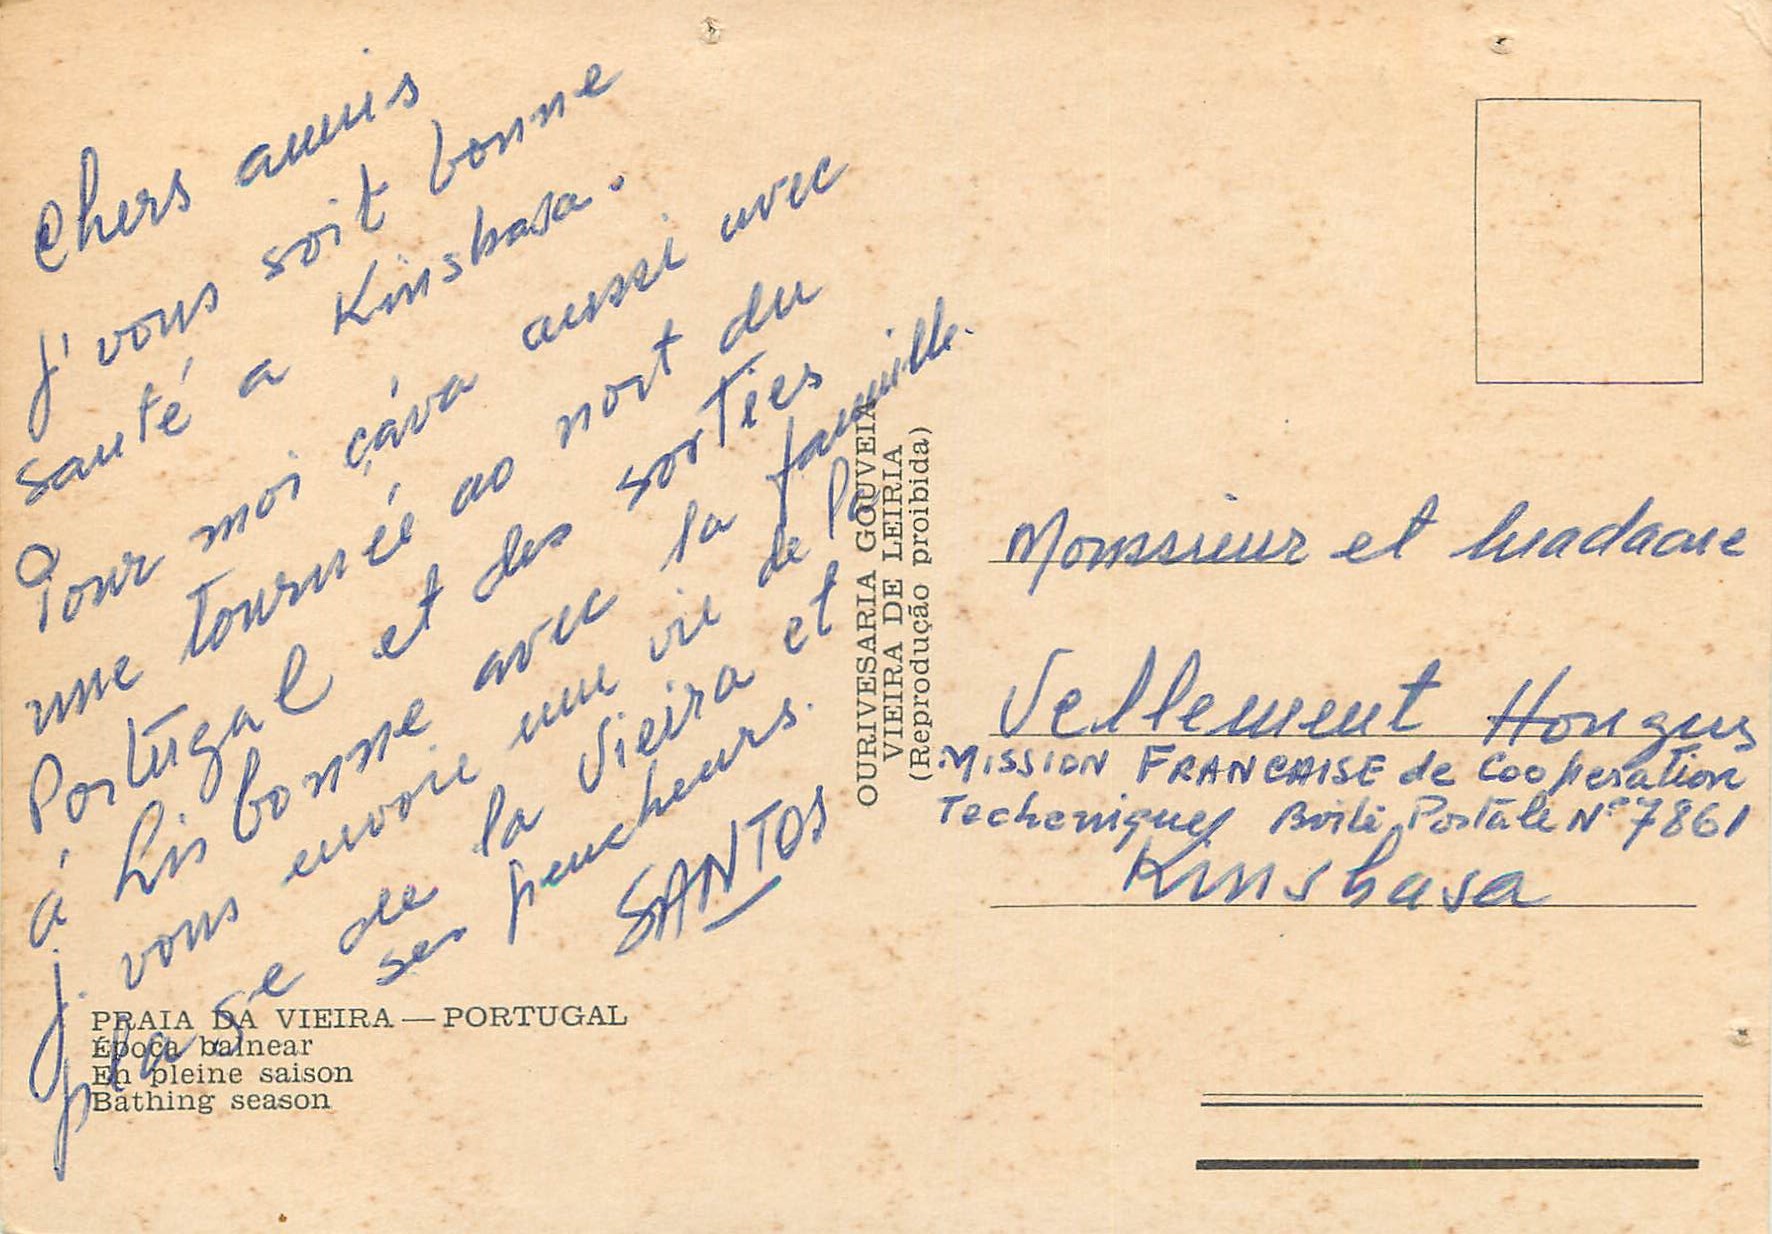 Chers amis
J' vous soit bonne
santé a Kinshasa.
Pour moi çáva aussi avec
une tournéé ao nort du
Portugal et des sorties
á Lisbonne avec la famille.
J. vous envoie une vie de la
plage de la Vieira et
ses pencheurs.
SANTOS
PRAIA DA VIEIRA — PORTUGAL
Época balnear
En pleine saison
Bathing season
OURIVESARIA GOUVEIA
VIEIRA DE LEIRIA
(Reprodução proibida)
Monssieur et Madame
Vellement Hongus
MISSION FRANCAISE de Cooperation
Techenique Boite Postale Nº 7861
Kinshasa